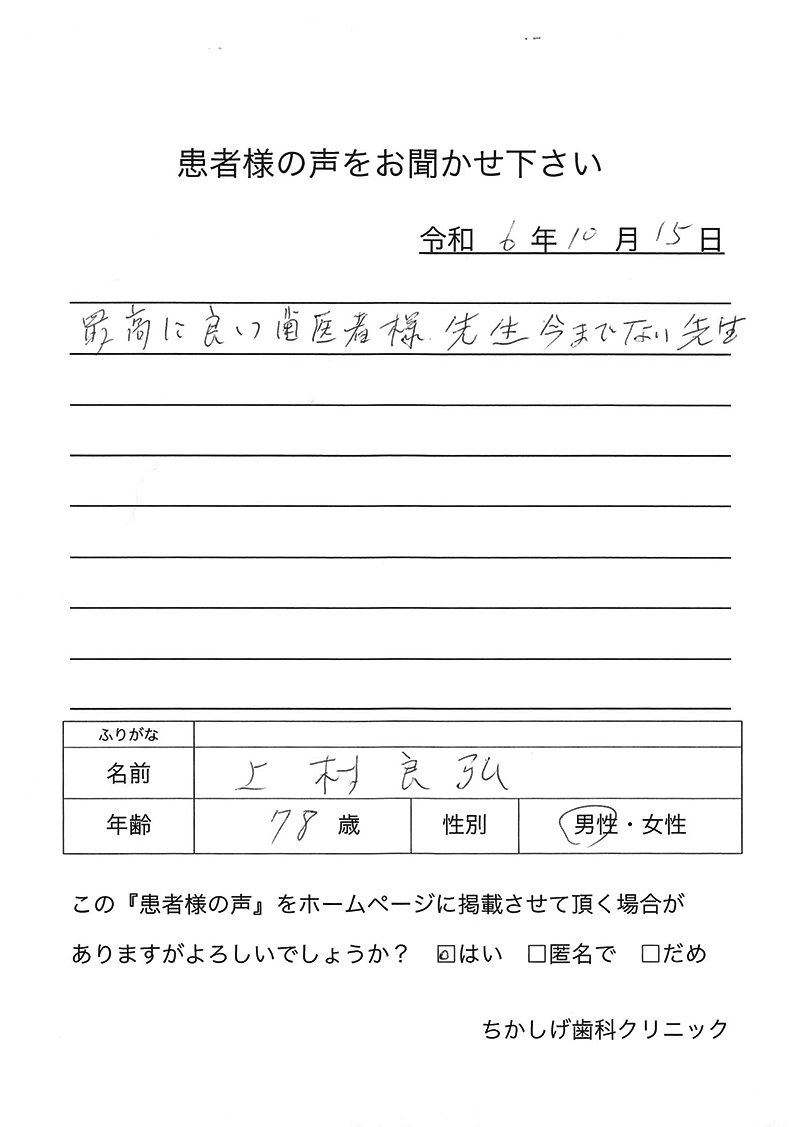 患者様の声をお聞かせ下さい
令和 6 年 10 月 15 日
最高に良い歯医者様 先生 今までない先生
ふりがな
名前 上村良弘
年齢 78 歳 性別 男性・女性
この『患者様の声』をホームページに掲載させて頂く場合が
ありますがよろしいでしょうか？ ☑はい □匿名で □だめ
ちかしげ歯科クリニック